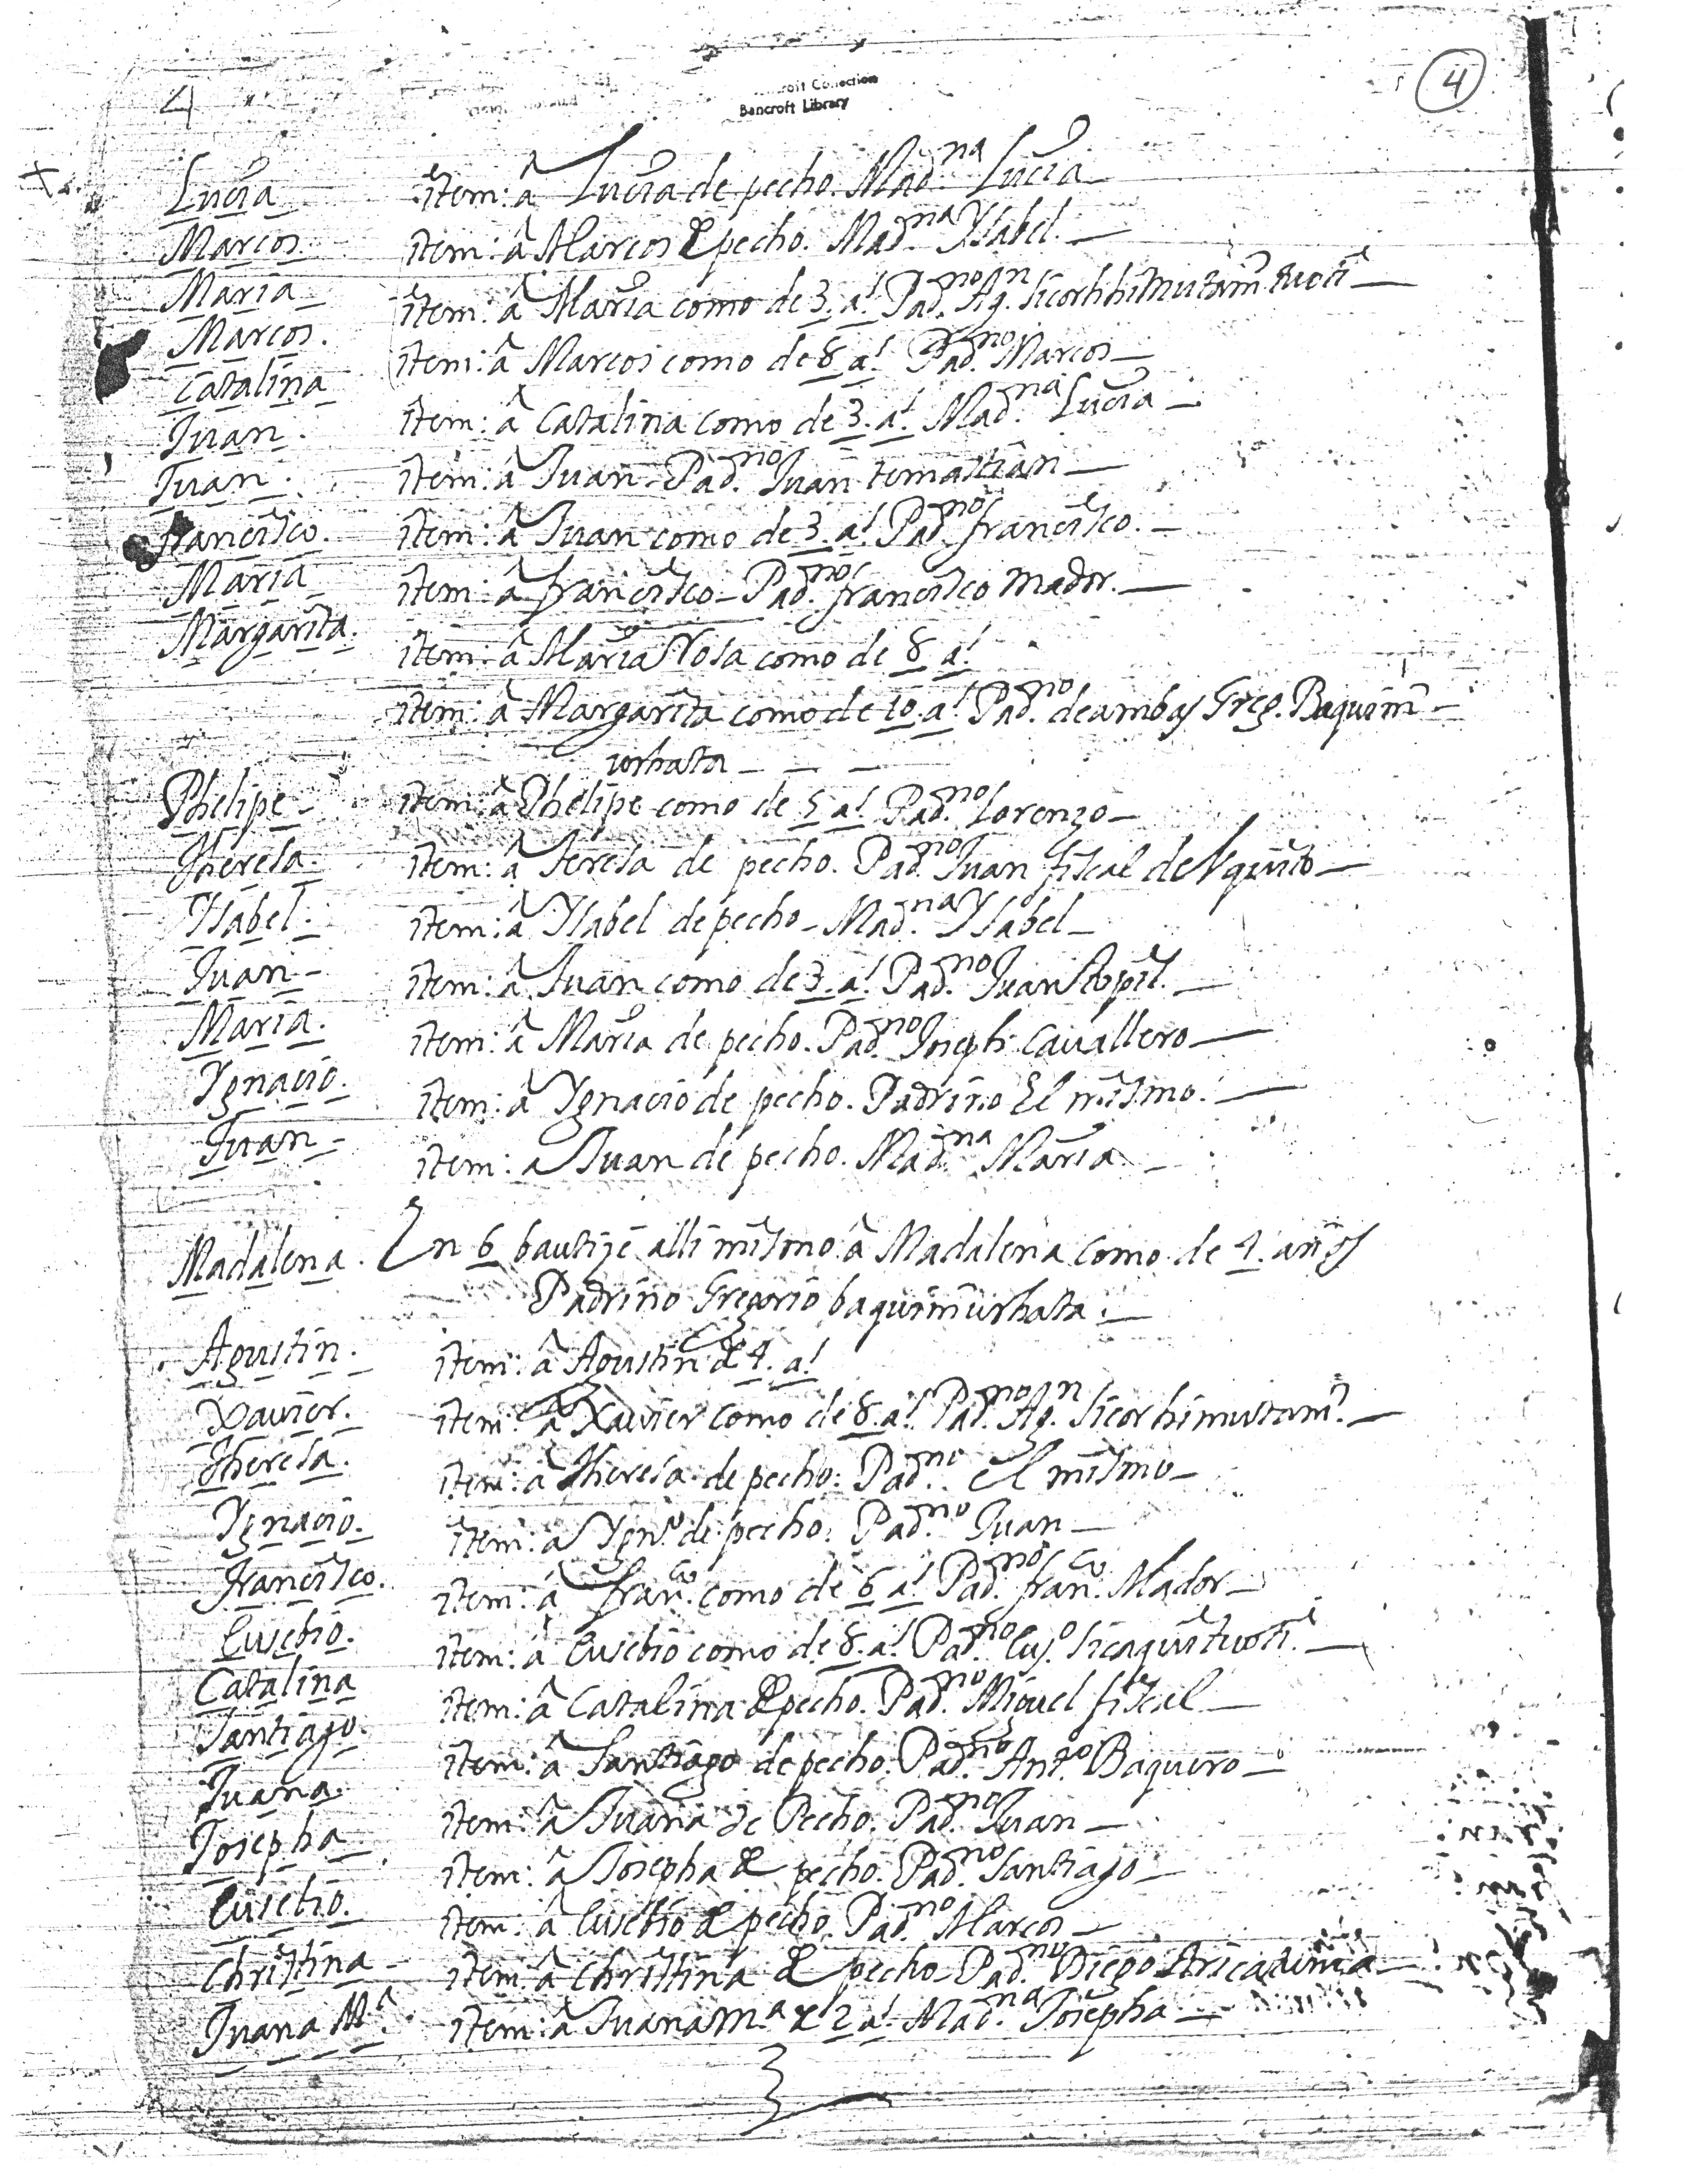 4
4
Bancroft Collection
Bancroft Library
Lucia item: â Lucia de pecho. Mad.na Lucia
Marcos item: â Marcos de pecho. Mad.na Ysabel
Maria item: â Maria como de 3. a.s Pad.no Ag.n
Marcos. item: â Marcos como de 8 a.s Pad.no Marcos
Catalina item: â Catalina como de 3. a.s Mad.na Lucia
Juan. item: â Juan. Pad.no Juan temastian
Juan. item: â Juan como de 3. a.s Pad.no francisco.
francisco. item: â francisco Pad.no francisco Mador.
Maria item: â Maria Rosa como de 8 a.s
Margarita. item: â Margarita como de 10. a.s Pad.no de ambas Greg. Baquim
urhata
Phelipe item: â Phelipe como de 5 a.s Pad.no Lorenzo
Theresa. item: â Teresa de pecho. Pad.no Juan fiscal de
Ysabel. item: â Ysabel de pecho Mad.na Ysabel
Juan item: â Juan como de 3. a.s Pad.no Juan
Maria. item: â Maria de pecho. Pad.no Joseph Cavallero
Ygnacio. item: â Ygnacio de pecho. Padrino El mismo.
Juan item: a Juan de pecho. Mad.na Maria
Madalena. En 6 bautize alli mismo â Madalena como de 4. años
Padrino Gregorio baquimurhata.
Agustin. item: â Agustin de 4. a.s
Xavier. item: â Xavier como de 8. a.s Pad.no Ag.n Sicorhimutam.
Theresa. item: â Theresa de pecho. Pad.no el mismo
Ygnacio. item: a Ygn.o de pecho. Pad.no Juan
francisco. item: â fran.co como de 6 a.s Pad.no fran.co Mador
Eusebio. item: â Eusebio como de 8. a.s Pad.no Eus.o
Catalina item: â Catalina de pecho. Pad.no Miguel fiscal
Santiago. item: â Santiago de pecho. Pad.no Ant.o Baquero
Juana. item: â Juana de Pecho. Pad.no Juan
Josepha item: â Josepha de pecho. Pad.no Santiago
Eusebio. item: â Eusebio de pecho. Pad.no Marcos
Christina item: â Christina de pecho Pad.no Diego
Juana M.a item: â Juana M.a de 2 a.s Mad.na Josepha